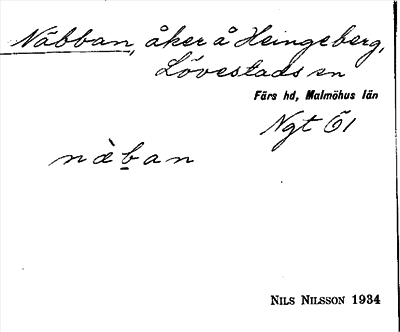 Näbban, åker å Heingeberg,
Lövestads sn
Färs hd, Malmöhus län
Ngt Ö1
nàb̲an
NILS NILSSON 1934